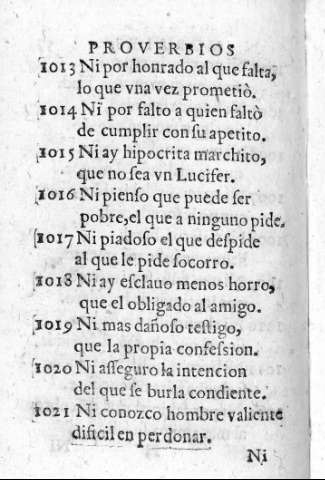 PROVERBIOS
1013 Ni por honrado al que falta,
lo que vna vez prometiò.
1014 Ni por falto a quien faltò
de cumplir con su apetito.
1015 Ni ay hipocrita marchito,
que no sea vn Lucifer.
1016 Ni pienso que puede ser
pobre, el que a ninguno pide.
1017 Ni piadoso el que despide
al que le pide socorro.
1018 Ni ay esclauo menos horro,
que el obligado al amigo.
1019 Ni mas dañoso testigo,
que la propia confession.
1020 Ni asseguro la intencion
del que se burla condiente.
1021 Ni conozco hombre valiente
dificil en perdonar.
Ni